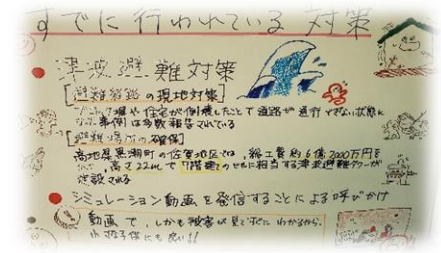 すでに行われている対策
津波避難対策
[避難経路の現地対策]
塀や住宅が倒壊したことで道路が通行できない状態に
事例は多数報告されている
[避難場所の確保]
高知県黒潮町の佐賀地区では、総工費約6億2000万円を
高さ22mで7階建てのビルに相当する津波避難タワーが
建設される
シミュレーション動画を発信することによる呼びかけ
動画で、しかも被害が見てすぐにわかるから、
小さい子供にも良い!!